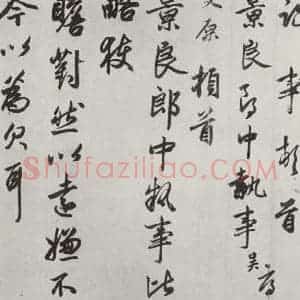 记事 顿首
景良郎中執事 吴 
文原 頓首
景良郎中執事比
略枝
瞻對然以遠嫌不
今以為欠耳
Shufaziliao.com